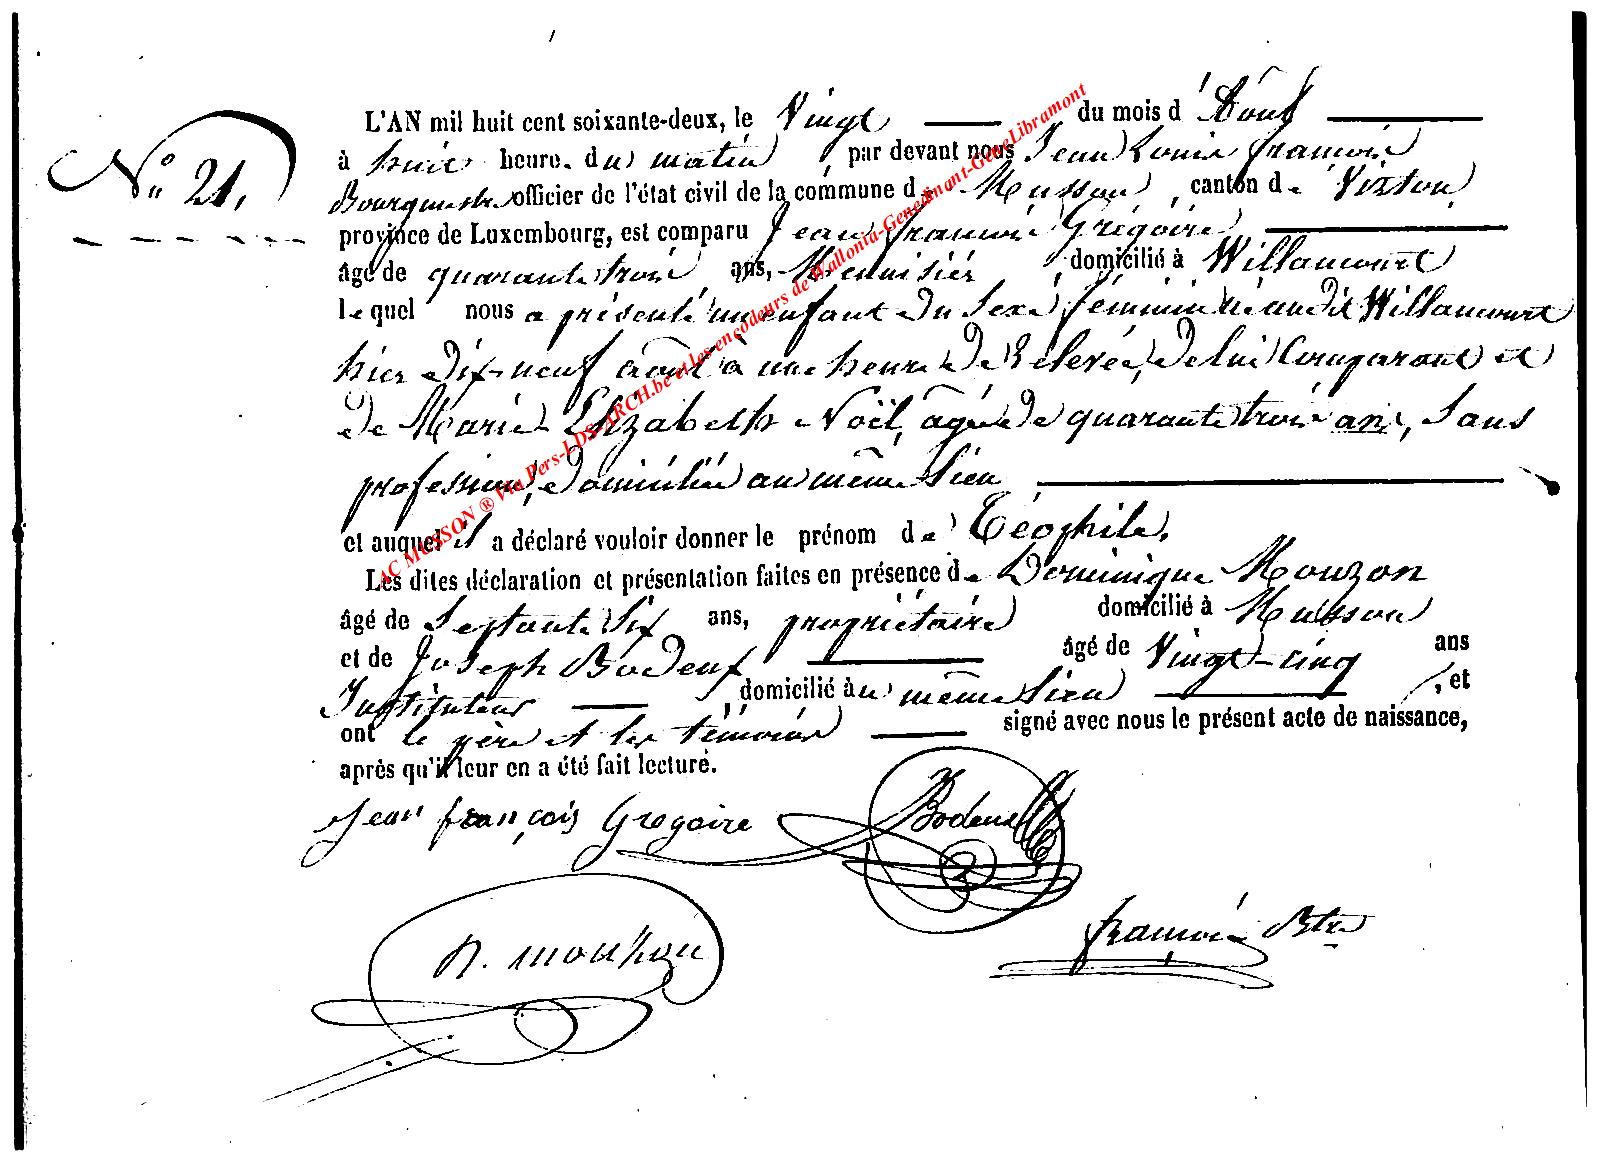 N° 21.
L'AN mil huit cent soixante-deux, le Vingt du mois d'Août
à huit heure. du matin par devant nous Jean Louis françois
Bourgmestre officier de l'état civil de la commune de Musson, canton de Virton
province de Luxembourg, est comparu Jean françois Grégoire
âgé de quarante trois ans, Menuisier domicilié à Willancourt
lequel nous a présenté un enfant du sexe féminin né audit Willancourt
hier dix-neuf août à une heure de relevée, de lui Comparant et
de Marie Elizabeth Noël, agée de quarante trois ans, Sans
profession, domiciliée au même lieu
et auquel il a déclaré vouloir donner le prénom de Téophile.
Les dites déclaration et présentation faites en présence de Dominique Mouzon
âgé de Septante Six ans, propriétaire domicilié à Musson
et de Joseph Bodeux âgé de Vingt-cinq ans
Instituteur, domicilié au même lieu, et
ont le père et les témoins signé avec nous le présent acte de naissance,
après qu'il leur en a été fait lecture.
Jean françois Gregoire Bodeux
D. mouzon
françois Btre
AC MUSSON ® Via Pers-LDS-ARCH.be et les encodeurs de Wallonia-Genealmont-GeneLibramont